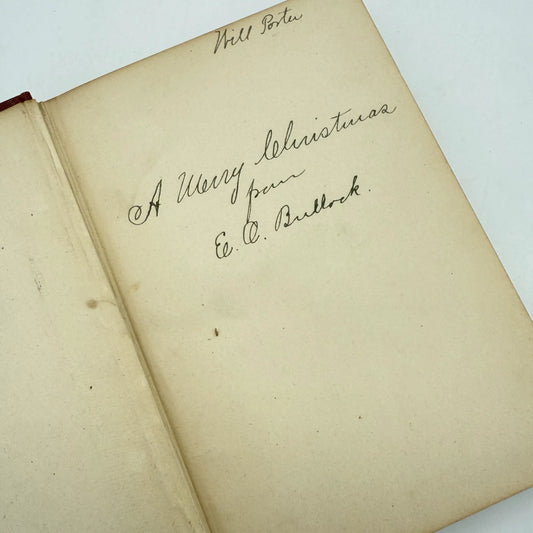 Will Porter
A Merry Christmas
from
E. C. Bullock.